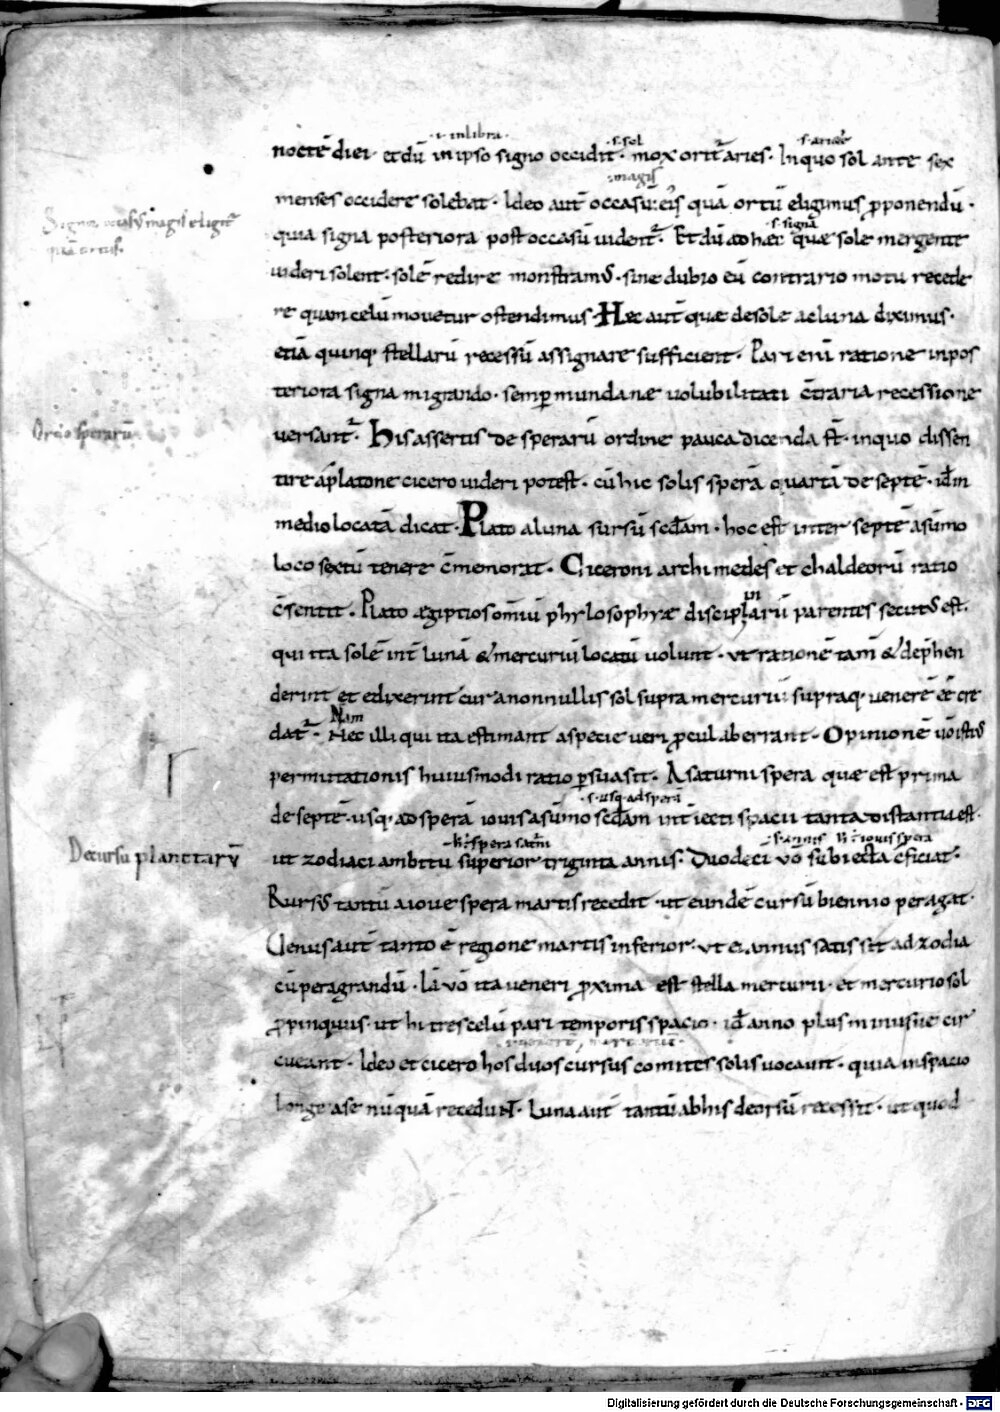 ·i· inlibra·
·s·sol
s·ariete
noctē diei· et dū in ipso signo occidit· mox orit᷑ aries· In quo sol ante sex
·magis
menses occidere solebat· Ideo aut̄ occasū eiꝰ quā ortū eligimus ꝓponendū·
Signoꝝ occasꝰ magis eligit᷑
quā ortus·
s·signa
quia signa posteriora post occasū uident᷑· Et dū ad hęc quæ sole mergente
uideri solent· solē redire monstramꝰ· sine dubio eū contrario motu recede
re quam celū mouetur ostendimus· Hęc aut̄ quæ de sole ac luna diximus·
etiā quinq· stellarū recessū assignare sufficient· Pari eni ratione in pos
teriora signa migrando· semꝑ mundanæ uolubilitati c̄traria recessione
Ordo sperarū
uersant᷑· His assertis de sperarū ordine pauca dicenda s̄t· in quo dissen
tire a platone cicero uideri potest· cū hic solis sperā quartā de septē· id̄ in
medio locatā dicat· Plato a luna sursū scđam· hoc est inter septē a sūmo
loco sextū tenere c̄memorat· Ciceroni archimedes et chaldeorū ratio
in
c̄sentit· Plato ægiptios om̄iū phylosophyæ disciplarū parentes secutꝰ est·
qui ita solē int̄ lunā & mercuriū locatū uolunt· ut rationē tam̄ & dep̄hen
derint et edixerint cur a nonnullis sol supra mercuriū supraq· uenerē ēē cre
Nam
dat᷑· Nec illi qui ita estimant a specie ueri ꝓcul aberrant· Opinionē ū istiꝰ
permutationis huiusmodi ratio ꝑsuasit· A saturni spera quæ est prima
·s·usq· ad sperā
de septē· usq· ad sperā iouis a sūmo scđam int̄iecti spacii tanta distantia est·
h·spera sat̄ni
·s·annis h·iouis spera
De cursu planetarū
ut zodiaci ambitū superior triginta annis· Duodeci uō subiecta c̄ficiat·
Rursꝰ tantū a ioue spera martis recedit· ut eundē cursū biennio peragat·
Uenus aut̄ tanto ē regione martis inferior· ut ei annus satis sit ad zodia
cū peragrandū· Iā uō ita ueneri ꝓxima est stella mercurii· et mercurio sol
ꝓpinquus· ut hi tres celū pari temporis spacio· id̄ anno plus minusue cir
cueant· Ideo et cicero hos duos cursus comites solis uocauit· quia in spacio
longe a se nūquā recedunt· Luna aut̄ tantū ab his deorsū recessit· ut quod
Digitalisierung gefördert durch die Deutsche Forschungsgemeinschaft - DFG